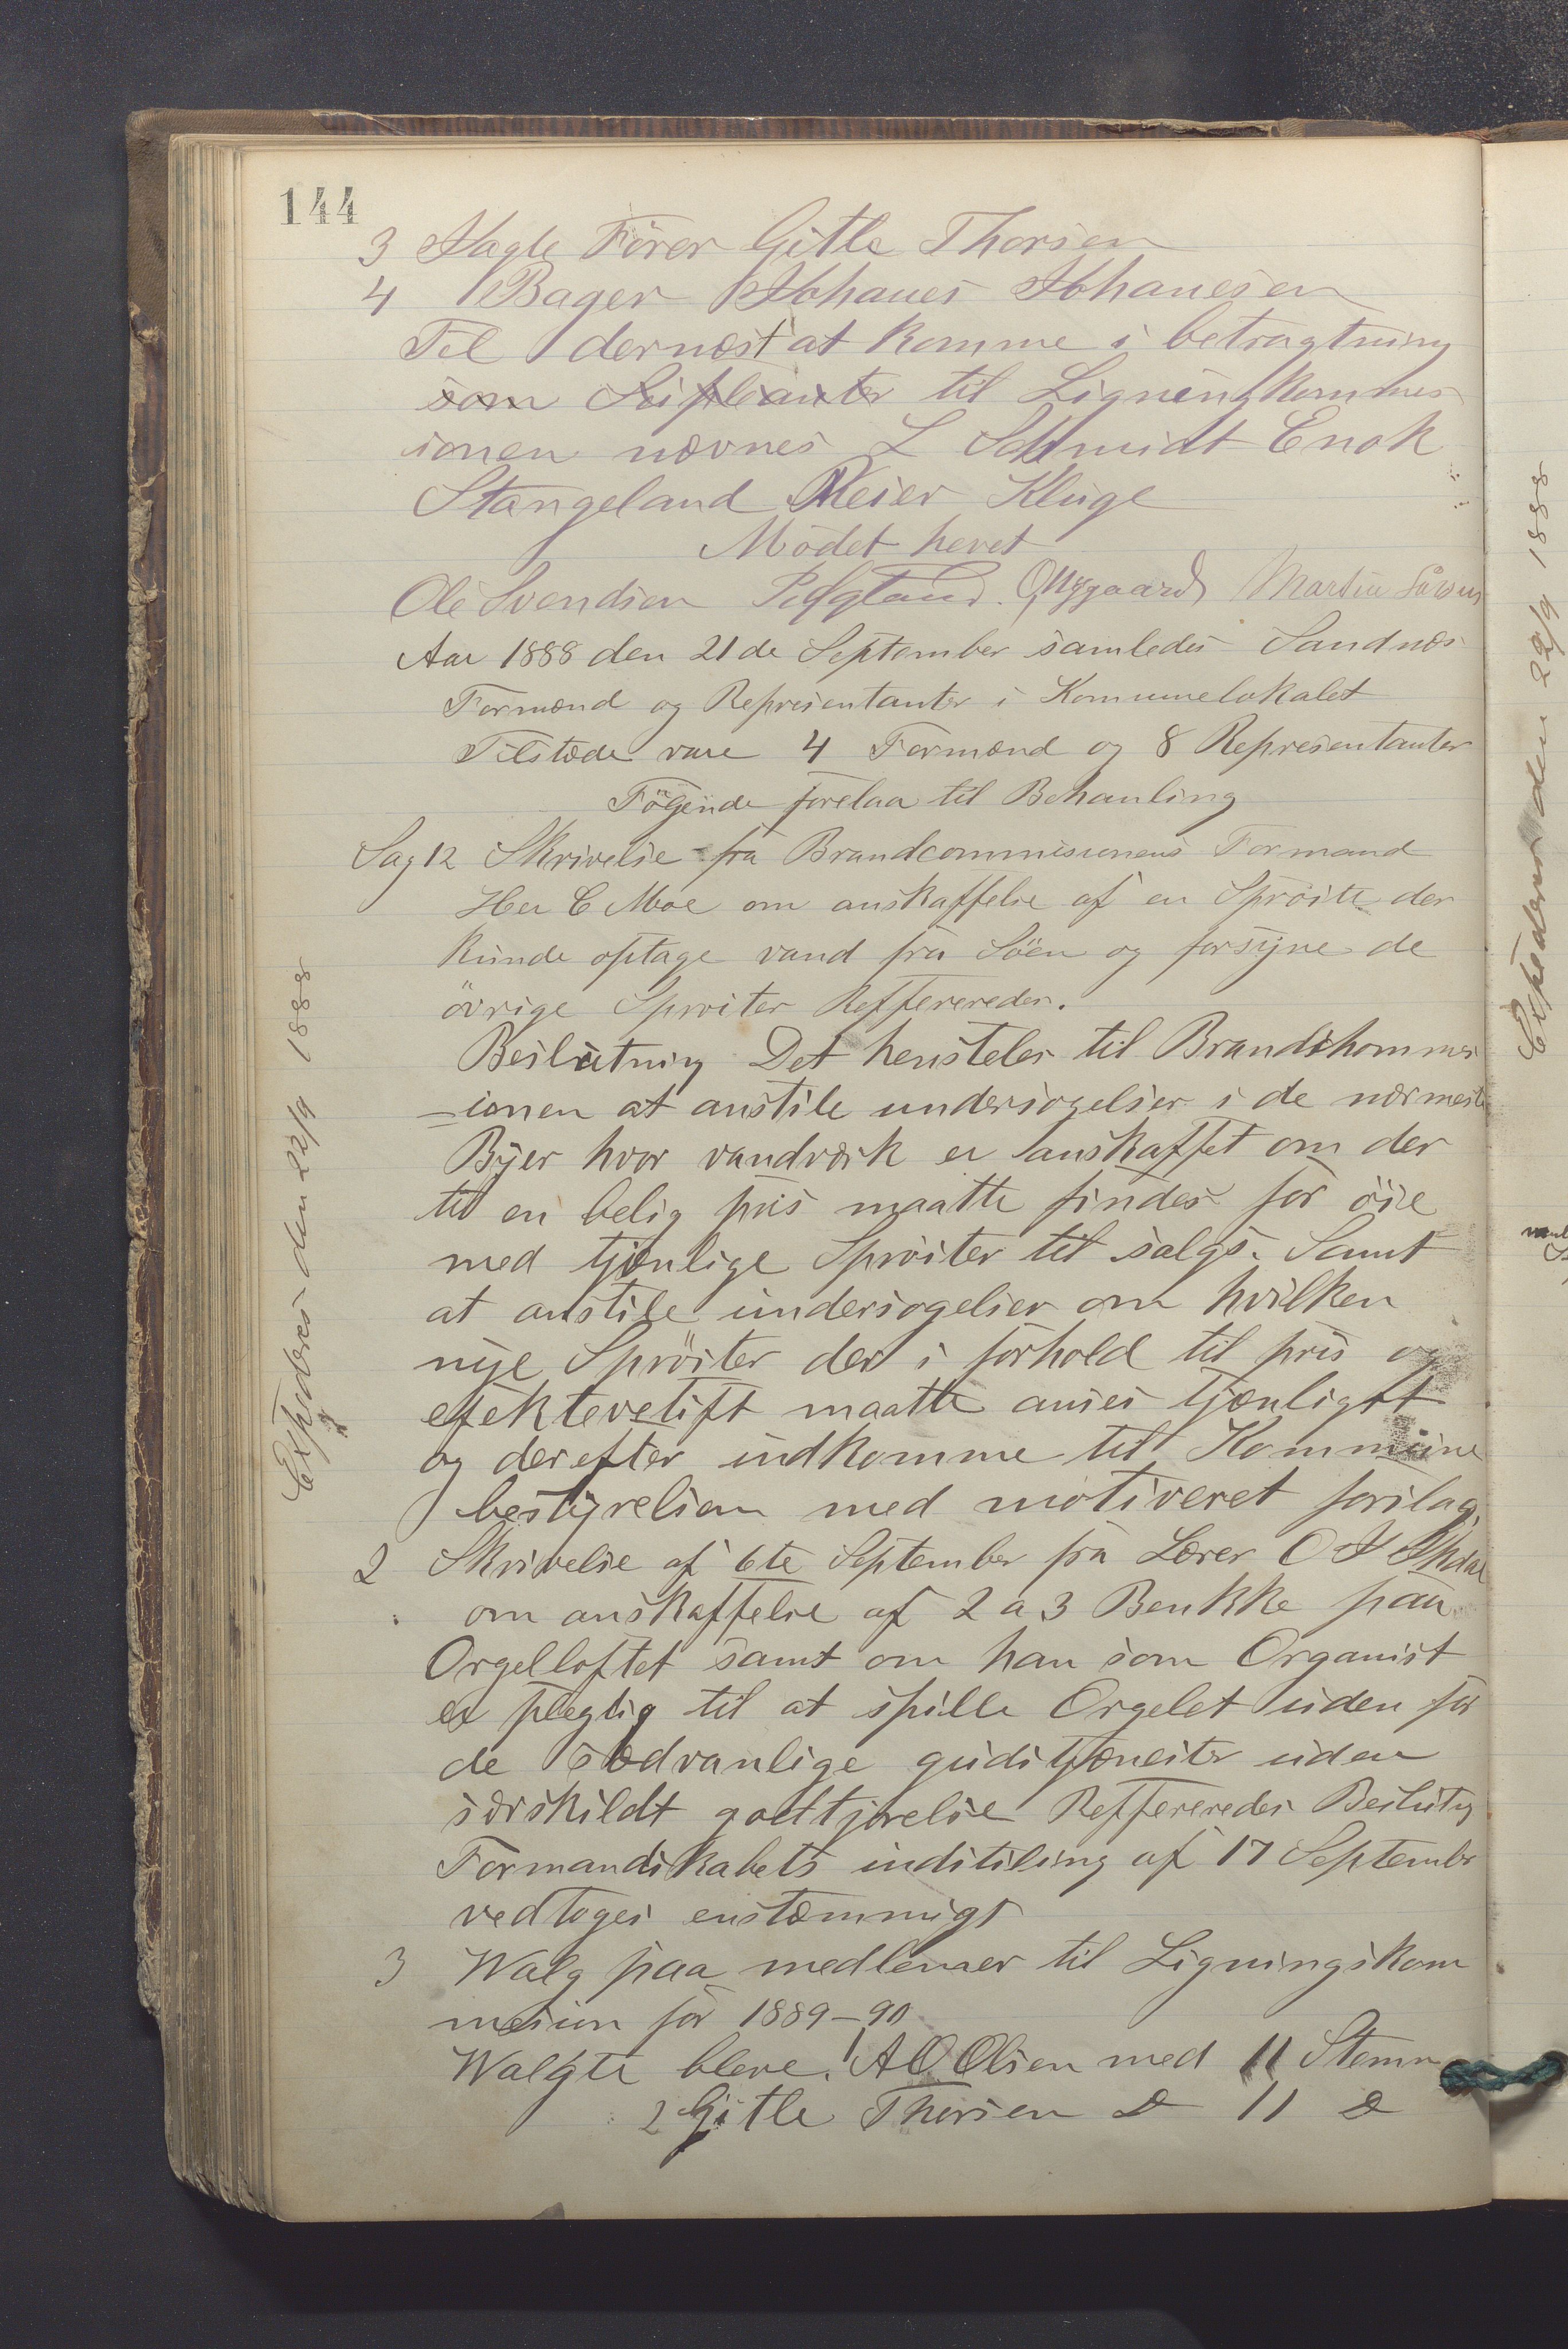 144
3 Jagte Fører Gitle Thorsen
4 Bager Johanes Johanesen
Til dernæst at komme i betragtning
som Supleanter til Ligningskommis
ionen nævnes L Schmidt Enok
Stangeland Meier Kluge
Mødet hevet
Ole Svendsen O Nygaard Martin
Aar 1888 den 21de September samledes Sandnæs
Formænd og Represientanter i Kommunelokalet
Tilstæde vare 4 Formænd og 8 Represientanter
Føgende forelaa til Behanling
Sag 12 Skrivelse fra Brandcommisionens Formand
Her C Moe om anskaffelse af en Sprøite der
kunde optage vand fra Søen og forsyne de
øvrige Sprøiter Refferereder.
Beslutning Det hensteles til Brandskommis
-ionen at anstile undersøgelser i de nærmeste
Byer hvor vandværk er anskaffet om der
til en belig pris maatte findes for øie
med tjenlige Sprøiter til salgs. Samt
at anstile undersøgelser om hvilken
nye Sprøiter der i forhold til pris og
efektevetift maatte anses tjænligst
og derefter indkomme til Kommune
bestyrelsen med motiveret forslag.
2 Skrivelse af 6te September fra Lærer O J
om anskaffelse af 2 a 3 Benkke paa
Orgelloftet samt om han som Organist
er plegtig til at spille Orgelet uden for
de sædvanlige gudstjænester uden
særskildt godtjørelse Refferereder Beslutng
Formandskabets indstiling af 17 Septembr
vedtoges enstæmmigt
3 Walg paa medlemer til Ligningskom
mesion for 1889-90
Walgte bleve. 1 A O Olsen med 11 Stemm
2 Gitle Thorsen D 11 D
Expederes den 22/9 1888
Expederes den 22/9 1888